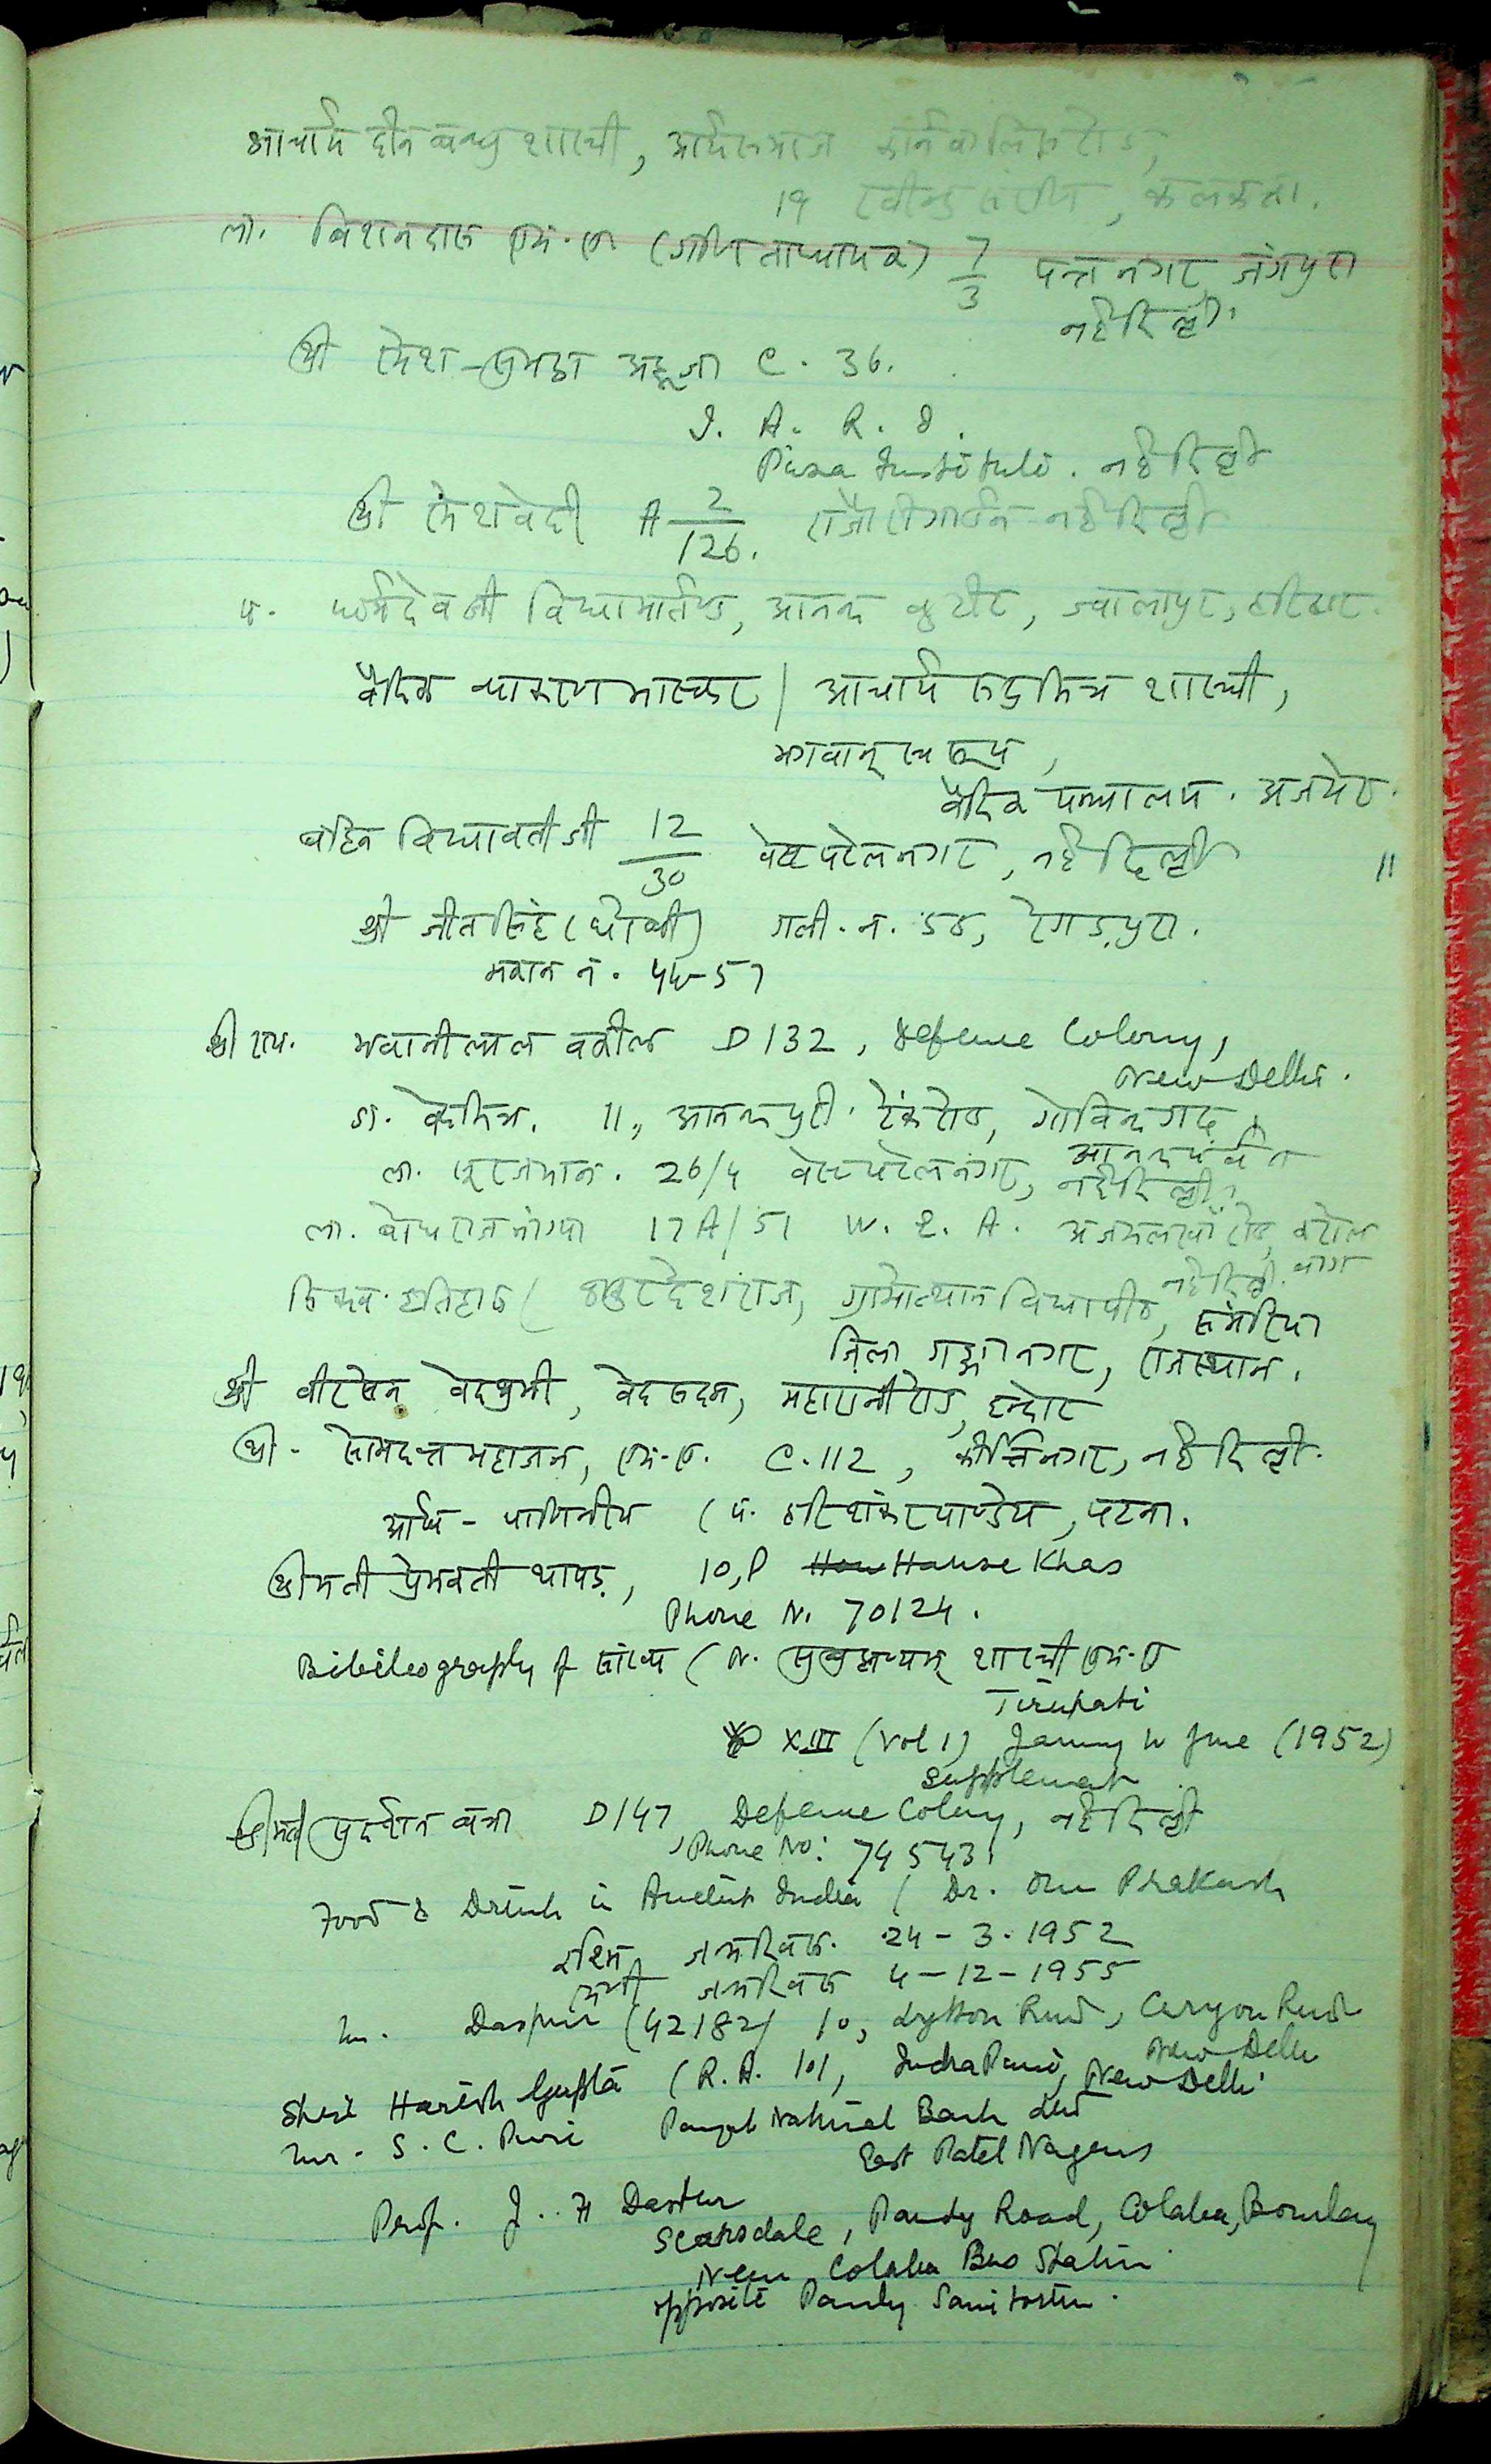 आचार्य दीनबन्धु शास्त्री, आर्यसमाज कार्नवालिस रोड,
19 , कलकत्ता.
ला. बिशनदास एम.ए. (गणिताध्यापक) 7/3 पन्तनगर, जंगपुरा
नई दिल्ली.
श्री रमेश-सुभद्रा आहूजा C. 36.
I. A. R. I.
Pusa Institute. नई दिल्ली
श्री रमेश वेदी A 2/126. राजौरी गार्डन नई दिल्ली
पं. धर्मदेव जी विद्यामार्तण्ड, आनन्द कुटीर, ज्वालापुर, हरिद्वार.
वैदिक व्याकरण भास्कर / आचार्य रुद्रमित्र शास्त्री,
भगवान् स्वरूप,
वैदिक यन्त्रालय. अजमेर.
बहिन विद्यावती जी 12/30 वेस्ट पटेलनगर, नई दिल्ली "
श्री जीतसिंह (धोबी) गली. न. 58, रेगड़पुरा.
मकान नं. 4457
श्री राय. भवानीलाल वकील D 132, Defence Colony,
New Delhi.
डा. वेदमित्र. 11, आनन्दपुरी. टैंक रोड, गोविन्दगढ़
आनन्द पर्वत
ला. सूरजभान. 26/4 वेस्ट पटेलनगर, नई दिल्ली.
ला. बोधराज 17A/51 W. E. A. अजमलखाँ रोड, करोल
बाग नई दिल्ली.
सिक्ख इतिहास (ठाकुर देशराज, ग्रामोत्थान विद्यापीठ, संगरिया
ज़िला गङ्गानगर, राजस्थान.
श्री वीरसेन वेदश्रमी, वेद सदन, महारानी रोड, इन्दौर
श्री. सोमदत्त महाजन, एम.ए. C.112, कीर्त्तिनगर, नई दिल्ली.
आर्ष - पाणिनीय (पं. हरिशंकर पाण्डेय, पटना.
श्रीमती प्रेमवती थापड़, 10,P Hause Khas
Phone N. 70124.
Bibileography of सांख्य (N. सुब्रह्मण्यम् शास्त्री एम.ए
Tirupati
XIII (Vol 1) January to June (1952)
Supplement
श्रीमती सुदर्शन बत्रा D147 Defence Colony, नई दिल्ली
Phone No: 74543
Food & Drink in Ancient India (Dr. Om Prakash
रश्मि जन्मदिवस. 24-3-1952
जन्मदिवस 4-12-1955
Mr. Daspur (42182) 10, Lytton Road, Curzon Road
New Delhi
Shri Harish Gupta (R.A. 101, Indra Puri, New Delhi
Mr. S. C. Puri Punjab National Bank Ltd
East Patel Nagar
Prof. J. H Dastur
Scarsdale, Pandy Road, Colaba, Bombay
Near Colaba Bus Station
opposite Pandy Sanitorium.